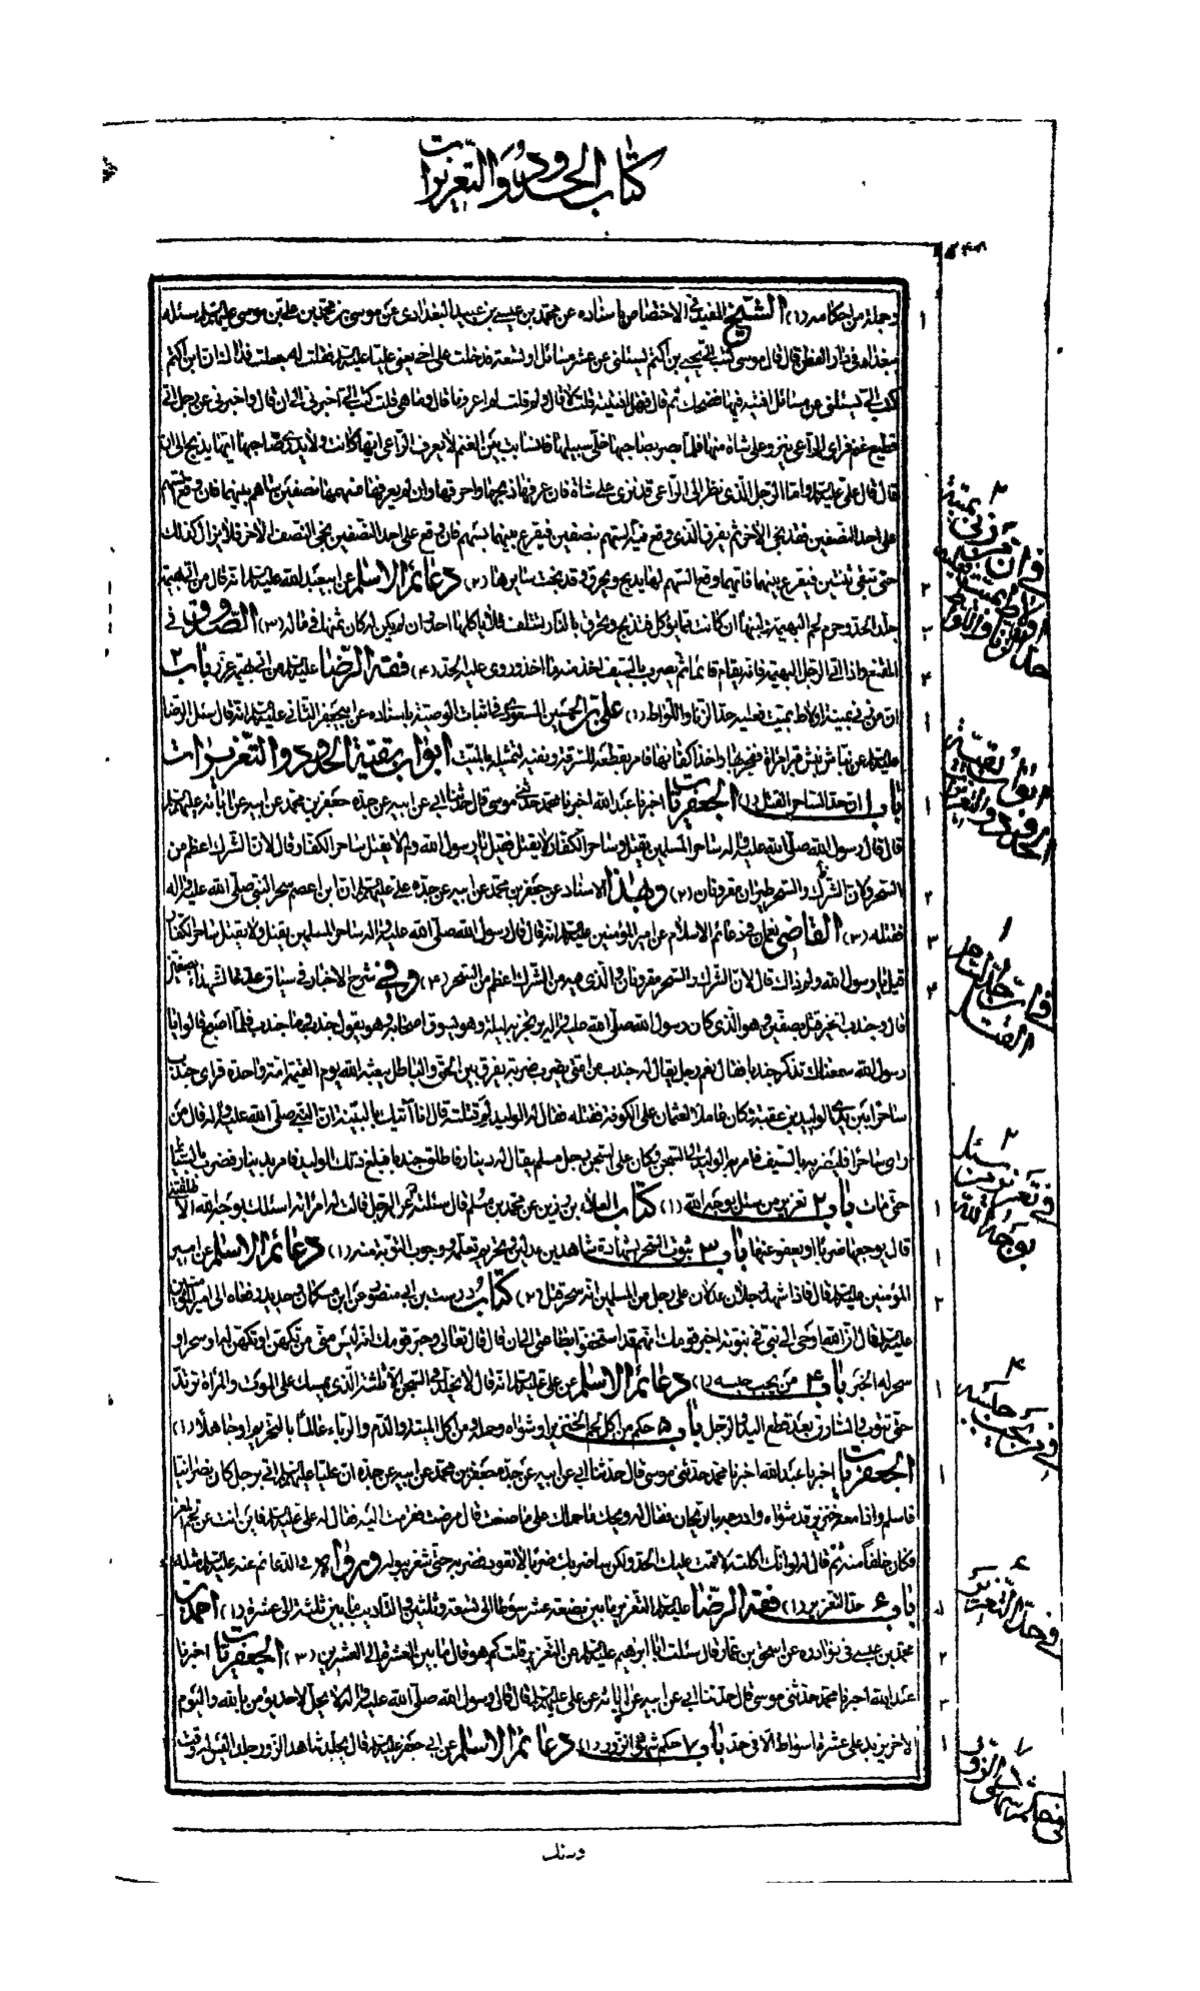 كتاب الحدود والتعزيرات
وجملة من احكامه (١) الشيخ المفيد في الاختصاص باسناده عن محمد بن عيسى بن عبيد البغدادي عن موسى بن محمد بن علي بن موسى سئله
ببغداد في دار الفطن قال قال موسى كتب الي يحيى بن اكثم يسئلني عن عشر مسائل او تسعة فدخلت على اخي يعني عليا عليه السلام فقلت له جعلت فداك ان ابن اكثم
كتب الي يسئلني عن مسائل افتيه فيها فضحك ثم قال فهل افتيته قلت لا قال ولم قلت لم اعرفها قال وما هي قلت كتب الي اخبرني الى ان قال واخبرني عن رجل اتى
قطيع غنم فرأى الراعي ينزو على شاة منها فلما بصر بصاحبها خلى سبيلها فانسابت بين الغنم لا يعرف الراعي ايها كانت ولا يدري صاحبها ايها يذبح الى ان
قال قال علي عليه السلام واما الرجل الذي نظر الى الراعي قد نزى على شاة فان عرفها ذبحها واحرقها وان لم يعرفها قسمها نصفين ساهم بينهما فان وقع السهم
على احد النصفين فقد نجى الاخر ثم يفرق الذي وقع فيه السهم بنصفين فيقرع بينهما بسهم فان وقع على احد النصفين نجى النصف الاخر فلا يزال كذلك
حتى تبقى ثنتين فيقرع بينهما فايهما وقع السهم لها يذبح ويحرق وقد نجت سايرها (٢) دعائم الاسلام عن ابيعبد الله عليه السلام انه قال من اتى بهيمة
جلد الحد وحرم لحم البهيمة ولبنها ان كانت مما يؤكل فتذبح وتحرق بالنار لتتلف فلا ياكلها احد وان لم يكن له كان ثمنها في ماله (٣) الصدوق في
المقنع واذا اتى الرجل البهيمة فانه يقام قائما ثم يضرب بالسيف اخذ منه ما اخذ وروي عليه الحد (٤) فقه الرضا عليه السلام من اتى بهيمة عزر باب ٢
ان من زنى بميتة او لاط بميت فعليه حد الزنا واللواط (١) علي بن الحسين المسعودي في اثبات الوصية باسناده عن ابيجعفر الثاني عليه السلام انه قال سئل الرضا
عليه السلام عن نباش نبش قبر امرأة ففجر بها واخذ اكفانها فامر بقطعه للسرقة ونفيه لتمثيله بالميت ابواب بقية الحدود والتعزيرات
باب ١ ان حد الساحر القتل (١) الجعفريات اخبرنا عبد الله اخبرنا محمد حدثني موسى قال حدثنا ابي عن ابيه عن جده جعفر بن محمد عن ابيه عن ابائه عليهم السلام
قال قال رسول الله صلى الله عليه واله ساحر المسلمين يقتل وساحر الكفار لا يقتل فقيل يا رسول الله ولم لا يقتل ساحر الكفار قال لان الشرك اعظم من
السحر وكان الشرك والسحر مقرونان (٢) وبهذا الاسناد عن جعفر بن محمد عن ابيه عن جده علي عليه السلام ان ابن اعصم سحر النبي صلى الله عليه واله
فقتله (٣) القاضي نعمان في دعائم الاسلام عن امير المؤمنين عليه السلام انه قال قال رسول الله صلى الله عليه واله ساحر المسلمين يقتل ولا يقتل ساحر الكفار
قيل يا رسول الله ولم ذاك قال لان الشرك والسحر مقرونان والذي فيه من الشرك اعظم من السحر (٤) وفي شرح الاخبار في سياق عد الشهداء بصفين
قال وجندب الخير قتل بصفين وهو الذي كان رسول الله صلى الله عليه واله يوجز به ليلة وهو يسوق اصحابه وهو يقول جندب وما جندب فلما اصبح قالوا يا
رسول الله سمعناك تذكر جندبا فقال نعم رجل يقال له جندب من امتي يضرب ضربة يفرق بين الحق والباطل يبعثه الله يوم القيمة امة واحدة فرأى جندب
ساحرا بين يدي الوليد بن عقبة وكان عاملا لعثمان على الكوفة فقتله فقال له الوليد لم قتلته قال انا اتيك بالبينة ان النبي صلى الله عليه واله قال من
راى ساحرا فليضربه بالسيف فامر به الوليد الى السجن وكان على السجن رجل مسلم يقال له دينار فاطلق جندبا فبلغ ذلك الوليد فامر بدينار فضرب بالسياط
حتى مات باب ٢ تعزير من سئل بوجه الله (١) كتاب العلاء بن رزين عن محمد بن مسلم قال سئلته عن الرجل قالت له امرأته اسئلك بوجه الله الا طلقتني
قال يوجعها ضربا او يعفو عنها باب ٣ ثبوت السحر بشهادة شاهدين عدلين وتحريم تعلمه ووجوب التوبة منه (١) دعائم الاسلام عن امير
المؤمنين عليه السلام قال فاذا شهد رجلان عدلان على رجل من المسلمين انه سحر قتل (٢) كتاب درست بن ابي منصور عن ابن مسكان وحديد رفعاه الى امير المؤمنين
عليه السلام قال ان الله اوحى الى نبي في نبوته اخبر قومك انهم قد استخفوا بطاعتي الى ان قال قال تعالى وخبر قومك انه ليس مني من تكهن او تكهن له او سحر او
سحر له الخبر باب ٤ من يجب حبسه (١) دعائم الاسلام عن علي عليه السلام انه قال لا يخلد في السجن الا ثلثة الذي يمسك على الموت والمرأة ترتد
حتى تتوب والسارق بعد قطع اليد والرجل باب ٥ حكم من اكل لحم الخنزير او شواه وحمله ومن اكل الميتة والدم والرباء عالما بالتحريم او جاهلا (١)
الجعفريات اخبرنا عبد الله اخبرنا محمد حدثني موسى قال حدثنا ابي عن ابيه عن جده جعفر بن محمد عن ابيه عن جده ان عليا عليه السلام اتي برجل كان نصرانيا
فاسلم واذا معه خنزير قد شواه وادرجه بالريحان فقال له ويحك ما حملك على ما صنعت قال مرضت فقرمت اليه فقال له علي عليه السلام فاين انت عن لحم المعز
فكان خلفا منه ثم قال له لو انك اكلته لاقمت عليك الحد ولكن ساضربك ضربا لا تعود فضربه حتى شغر ببوله ورواه في الدعائم عنه عليه السلام مثله
باب ٦ حد التعزير (١) فقه الرضا عليه السلام التعزير ما بين بضعة عشر سوطا الى تسعة وثلثين والتاديب ما بين ثلثة الى عشرة (٢) احمد بن
محمد بن عيسى في نوادره عن اسحق بن عمار قال سئلت ابا ابرهيم عليه السلام عن التعزير قلت كم هو قال ما بين العشرة الى العشرين (٣) الجعفريات اخبرنا
عبد الله اخبرنا محمد حدثني موسى قال حدثنا ابي عن ابيه عن ابائه عن علي عليه السلام قال قال رسول الله صلى الله عليه واله لا يحل لاحد يؤمن بالله واليوم
الاخر يزيد على عشرة اسواط الا في حد باب ٧ حكم شهود الزور (١) دعائم الاسلام عن ابي جعفر عليه السلام قال يجلد شاهد الزور جلدا ليس له وقت
٢
في ان من زنى بميتة
او لاط بميت فعليه
حد الزنا واللواط
ابواب بقية
الحدود والتعزيرات
١
في ان حد الساحر
القتل
٢
في تعزير من سئل
بوجه الله
٤
في من يجب حبسه
٦
في حد التعزير
٧
في حكم شهود الزور